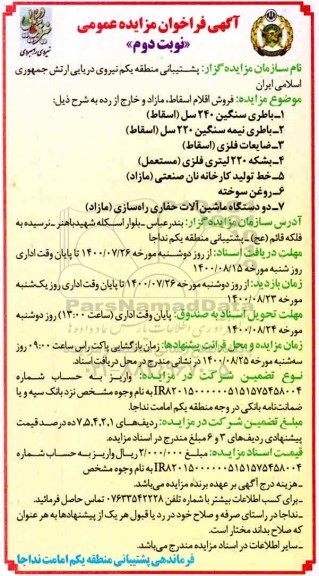 آگهی فراخوان مزایده عمومی
«نوبت دوم»
نام سازمان مزایده گزار: پشتیبانی منطقه یکم نیروی دریایی ارتش جمهوری
اسلامی ایران
موضوع مزایده: فروش اقلام اسقاط، مازاد و خارج از رده به شرح ذیل:
۱-باطری سنگین ۲۴۰ سل (اسقاط)
۲-باطری نیمه سنگین ۲۲۰ سل (اسقاط)
۳-ضایعات فلزی (اسقاط)
۴-بشکه ۲۲۰ لیتری فلزی (مستعمل)
۵-خط تولید کارخانه نان صنعتی (مازاد)
۶-روغن سوخته
۷-دو دستگاه ماشین آلات حفاری راه‌سازی (مازاد)
آدرس سازمان مزایده گزار: بندرعباس-بلوار اسکله شهیدباهنر-نرسیده به
فلکه قائم (عج)-پشتیبانی منطقه یکم نداجا
مهلت دریافت اسناد: از روز دوشنبه مورخه ۱۴۰۰/۰۷/۲۶ تا پایان وقت اداری
روز شنبه مورخه ۱۴۰۰/۰۸/۱۵
زمان بازدید: از روز دوشنبه مورخه ۱۴۰۰/۰۷/۲۶ تا پایان وقت اداری روز یک‌شنبه
مورخه ۱۴۰۰/۰۸/۲۳
مهلت تحویل اسناد به صندوق: پایان وقت اداری (ساعت ۱۳:۰۰) روز دوشنبه
مورخه ۱۴۰۰/۰۸/۲۴
زمان مزایده و محل قرائت پیشنهادها: زمان بازگشایی پاکت راس ساعت ۰۹:۰۰ روز
سه‌شنبه مورخه ۱۴۰۰/۰۸/۲۵ در نشانی مندرج در محل دریافت اسناد.
نوع تضمین شرکت در مزایده: واریز به حساب شماره
به نام وجوه مشخص نزد بانک سپه و یا
ضمانت‌نامه بانکی در وجه منطقه یکم امامت نداجا.
مبلغ تضمین شرکت در مزایده: ردیف‌های ۷،۵،۴،۲،۱ ده درصد قیمت
پیشنهادی ردیف‌های ۳ و ۶ مبلغ مندرج در اسناد مزایده.
قیمت اسناد مزایده: مبلغ ۲/۰۰۰/۰۰۰ ریال واریز به حساب شماره
به نام وجوه مشخص
-هزینه درج آگهی بر عهده برنده مزایده می‌باشد.
-برای کسب اطلاعات بیشتر با شماره تلفن ۰۷۶۳۳۵۴۲۲۲۸ تماس حاصل فرمائید.
-نداجا در راستای صرفه و صلاح خود در رد یا قبول هر یک از پیشنهادها به هر عنوان
که صلاح بداند مختار است.
-سایر اطلاعات در اسناد مزایده مندرج می‌باشد.
فرماندهی پشتیبانی منطقه یکم امامت نداجا